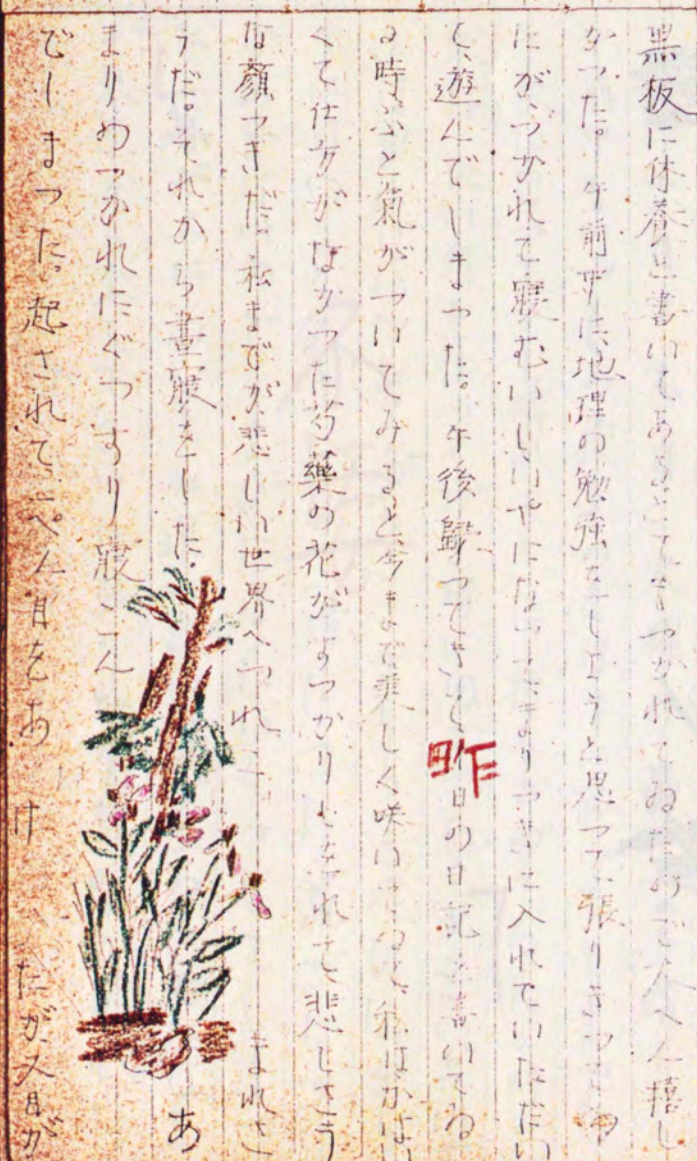 黒板に休養と書いてあるとてもつかれてゐたので大へん嬉し
かつた。午前中に地理の勉強をしようと思つて、張りきつてゐ
にがつかれて寢むいしいやになつ まりつきに入れていただい
て、遊んでしまつた。午後歸つてきて昨日の日記を書いてゐ
る時ふと氣がついてみると今まで美しく咲いてゐて、私はかはい
くて仕方がなかつた芍藥の花がすつかりしをれて悲しさう
な顏つきだ。私までが悲しい世界へつれ まれさ
うだ。それから晝寢をした。あ
まりのつかれにぐつすり寢こん
でしまつた。起されて一ぺん目をあけ たが又目が